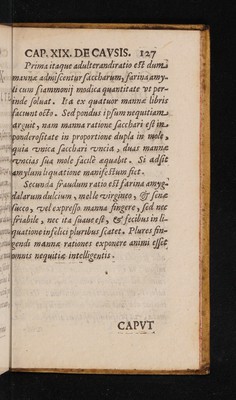 CAP. XIX. DE CAVSIS. 127
Prima itaque adulterandi ratio est dum
mannæ admiscentur saccharum, farina amy-
li cum scammonij modica quantitate vt per-
inde soluat. Ita ex quatuor mannæ libris
faciunt octo. Sed pondus ipsum nequitiam
arguit, nam manna ratione sacchari est in
ponderositate in proportione dupla in mole,
quia vnica sacchari vncia, duas mannæ
vncias sua mole facilè æquabit. Si adsit
amylum liquatione manifestum fiet.
Secunda fraudum ratio est farina amyg-
dalarum dulcium, melle virgineo, & senæ
succo, vel expresso mannæ fingere, sed nec
friabile, nec ita suaue est, & fecibus in li-
quatione infelici pluribus scatet. Plures fin-
gendi mannæ rationes exponere animi esset
omnis nequitiæ intelligentis.
CAPVT